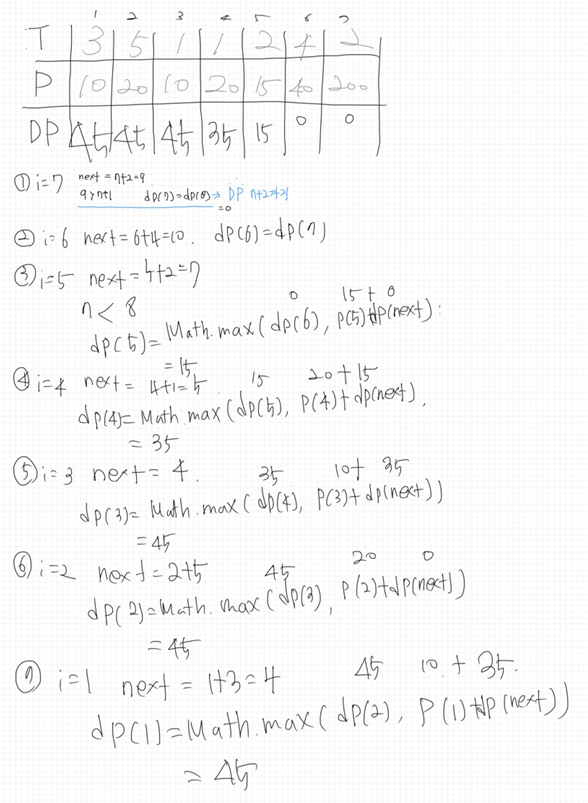 1 2 3 4 5 6 7
T 3 5 1 1 2 4 2
P 10 20 10 20 15 40 200
DP 45 45 45 35 15 0 0
① i=7 next = 7+2=9
9>7+1 dp(7)=dp(8) → DP
=0
② i=6 next=6+4=10. dp(6)=dp(7)
③ i=5 next=5+2=7
7<8 0 15+ 0
dp(5)=Math.max(dp(6), P(5)+dp(next):
=15
④ i=4 next= 4+1=5 15 20+15
dp(4)=Math.max(dp(5), P(4)+dp(next),
=35
⑤ i=3 next=4. 35 10+ 35
dp(3)=Math.max(dp(4), P(3)+dp(next))
=45
⑥ i=2 next=2+5 45 20 0
dp(2)=Math.max(dp(3), P(2)+dp(next))
=45
⑦ i=1 next = 1+3=4 45 10.+ 35.
dp(1)=Math.max(dp(2), P(1)+dp(next))
= 45